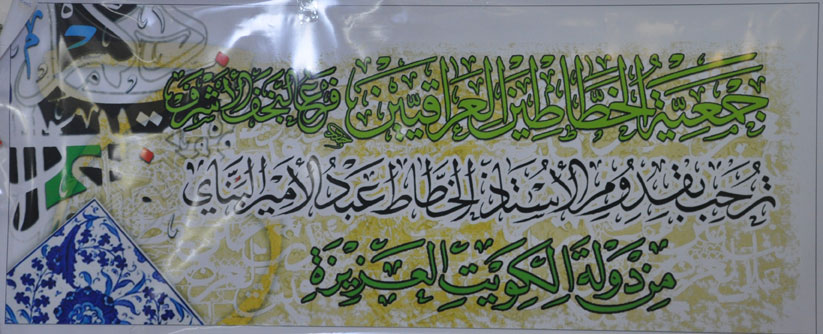 جمعية الخطاطين العراقيين فرع النجف الأشرف
ترحب بقدوم الأستاذ الخطاط عبد الأمير البناي
من دولة الكويت العزيزة